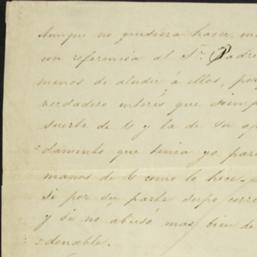 Aunque no quisiera hacer
con referencia al Sr. Padre
menos de aludir á ellos, por
verdadero interés que siemp
suerte de U y la de su
damente que tenia yo para
manos de U como lo hice
si por su parte supo corre
y si no abusó mas bien de
denable.